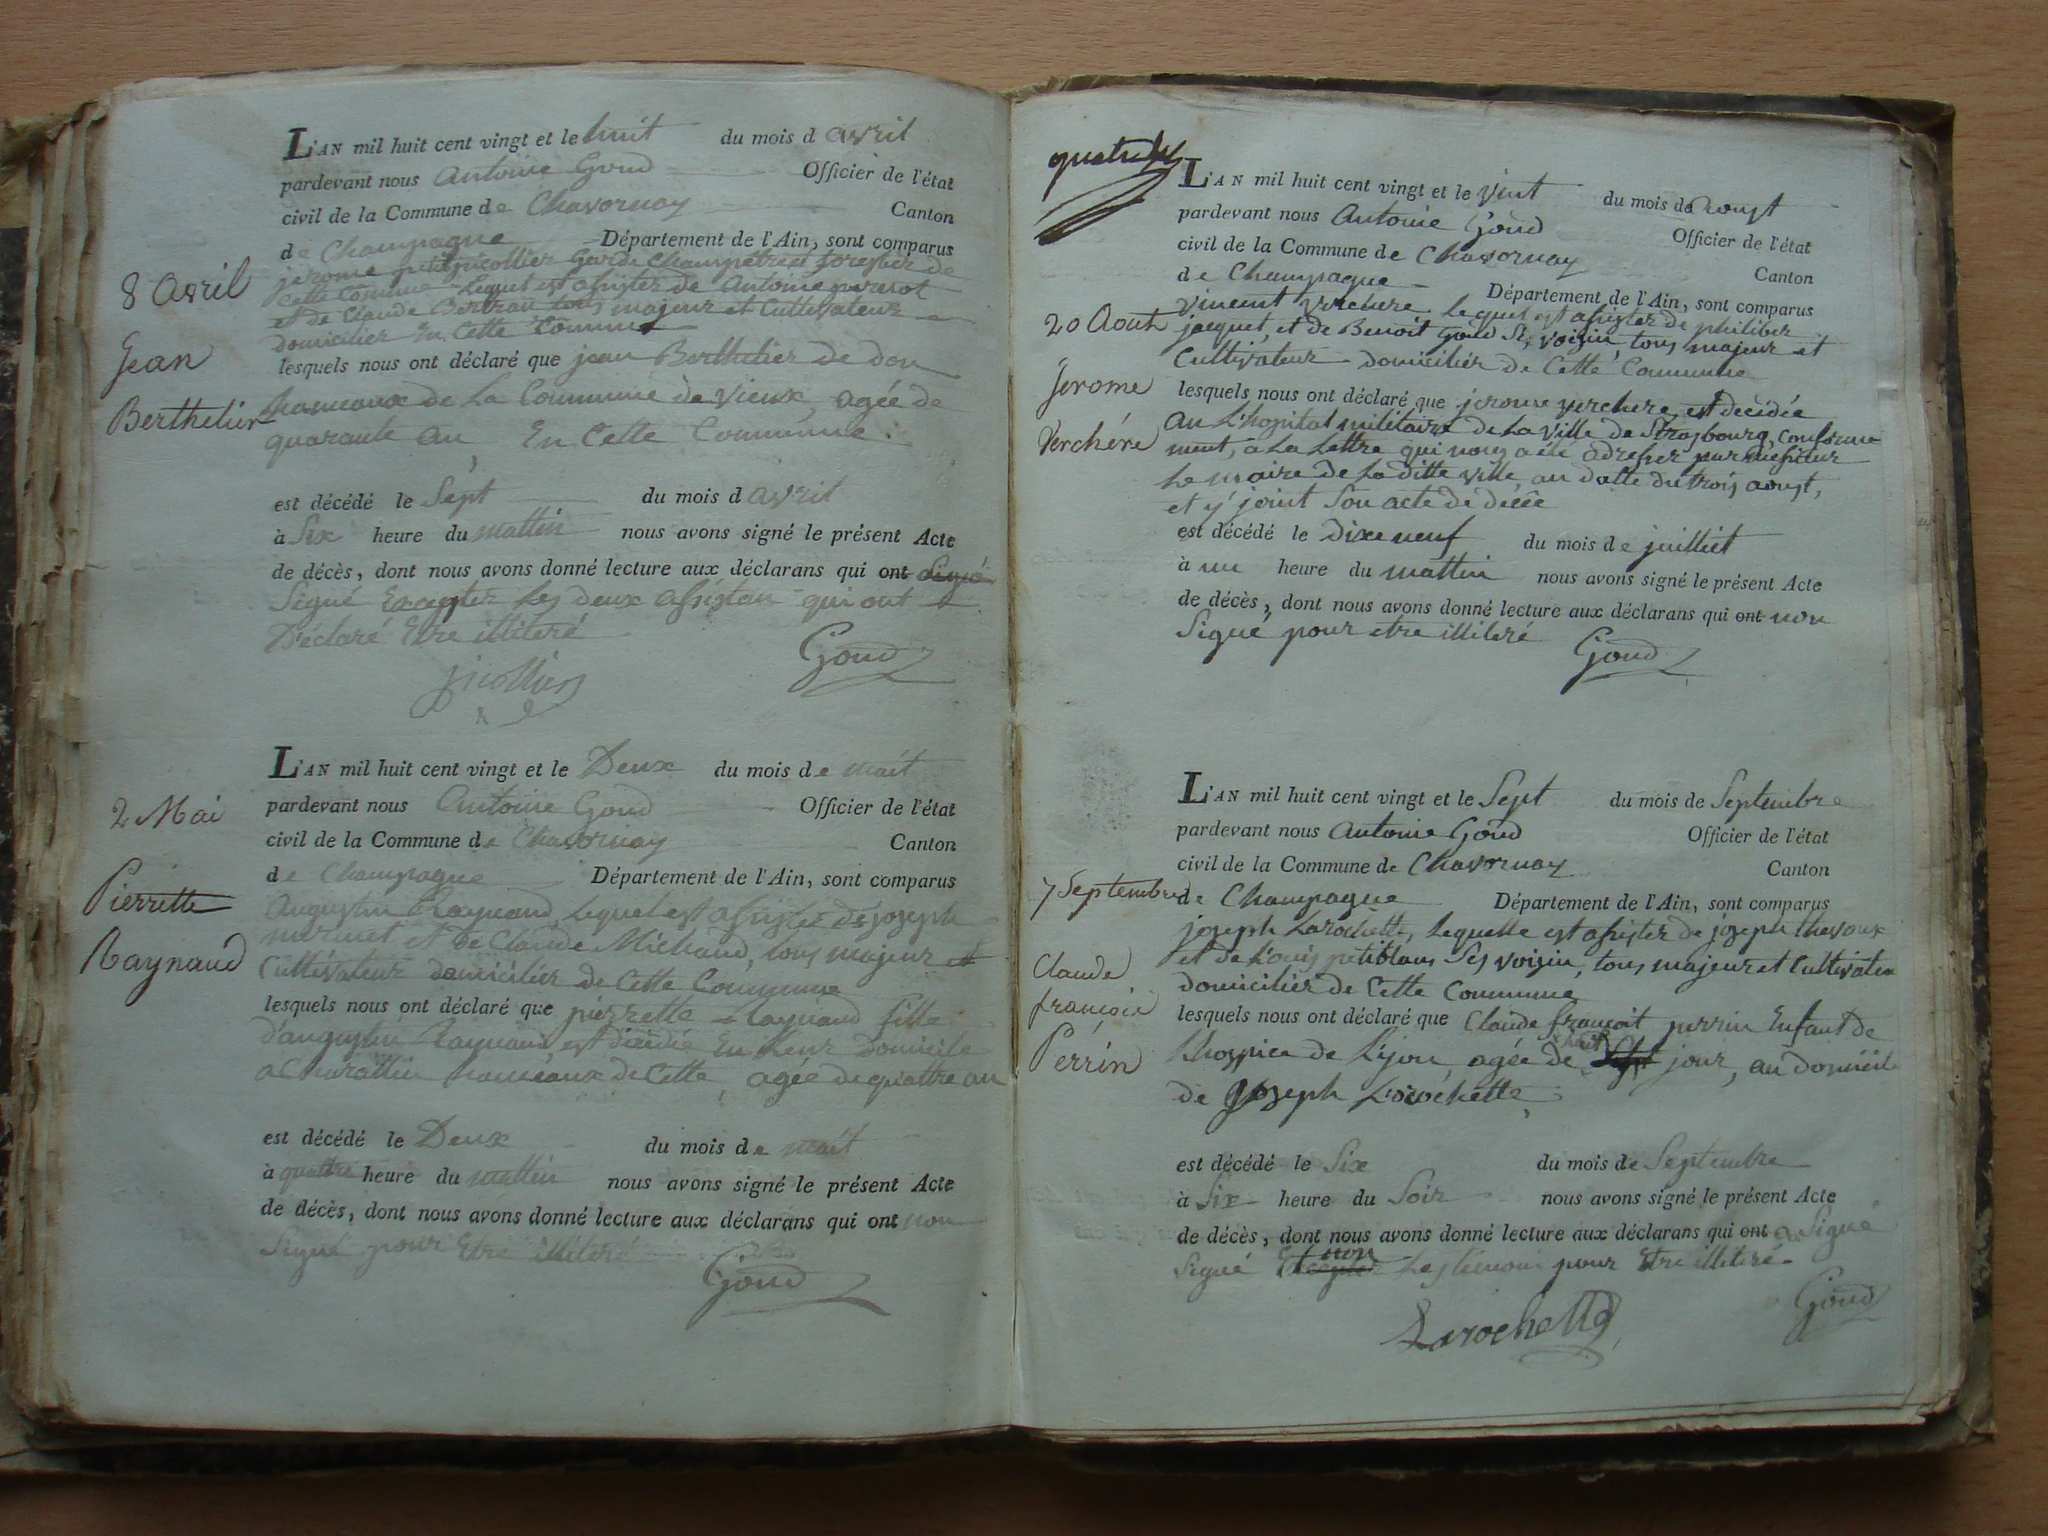 L'AN mil huit cent vingt et le huit du mois d avril
pardevant nous Antoine Goud Officier de l'état
civil de la Commune de Chavornay Canton
de Champagne Département de l'Ain, sont comparus
jerome petit nicollier garde Champetre et forestier de
cette Commune Lequel est assister de Antoine
et de Claude Bertran tous majeur et Cultivateur
domicilier En Cette Commune
8 Avril
Jean
Berthelier
lesquels nous ont déclaré que jean Berthelier de don
hameaux de La Commune de Vieux, agée de
quarante an, En Cette Commune.
est décédé le Sept du mois d avril
à Six heure du mattin nous avons signé le présent Acte
de décès, dont nous avons donné lecture aux déclarans qui ont Signé
Signé Excepter Les deux assistan qui ont
Déclaré Etre illiteré
Goud
L'AN mil huit cent vingt et le Deux du mois de mait
pardevant nous Antoine Goud Officier de l'état
civil de la Commune de Chavornay Canton
de Champagne Département de l'Ain, sont comparus
2 Mai
Pierrette
Raynaud
Augustin Raynaud, Lequel est assister de joseph
et de Claude Michaud, tous majeur et
Cultivateur domicilier de Cette Commune
lesquels nous ont déclaré que pierrette Raynaud fille
d'augustin Raynaud est décidée En Leur Domicile
a Charollin hameaux de Cette, agée de quattre an
est décédé le Deux du mois de mait
à quattre heure du mattin nous avons signé le présent Acte
de décès, dont nous avons donné lecture aux déclarans qui ont non
Signé pour Etre illiteré
Goud
L'AN mil huit cent vingt et le vint du mois de aoust
pardevant nous Antoine Goud Officier de l'état
civil de la Commune de Chavornay Canton
de Champagne Département de l'Ain, sont comparus
vincent verchere Lequel est assister de philiber
20 Aout
Jerome
Verchére
jacquet, et de Benoit Goud Ses voizin, tous majeur et
Cultivateur domicilier de Cette Commune
lesquels nous ont déclaré que jerome verchere est decidée
au L'hopital militaire de La Ville de Strasbourg, Conforme
ment, a La Lettre qui nous a été adresser par messieur
Le maire de La ditte ville, au datte du trois aoust,
et y joint Son acte de décée
est décédé le Dixe neuf du mois de juilliet
à un heure du mattin nous avons signé le présent Acte
de décès, dont nous avons donné lecture aux déclarans qui ont non
Signé pour etre illiteré
Goud
L'AN mil huit cent vingt et le Sept du mois de Septembre
pardevant nous Antoine Goud Officier de l'état
civil de la Commune de Chavornay Canton
7 Septembre
de Champagne Département de l'Ain, sont comparus
joseph Larochette, Lequelle est assister de joseph thevoux
et de Louis petitblanc Ses voizin, tous majeur et Cultivateu
domicilier de Cette Commune
Claude
françois
Perrin
lesquels nous ont déclaré que Claude françoit perrin Enfant de
Lhospice de Lyon, agée de huit Sept jour, au domicile
de Joseph Larochette,
est décédé le Six du mois de Septembre
à Six heure du Soir nous avons signé le présent Acte
de décès, dont nous avons donné lecture aux déclarans qui ont a Signé
Signé Excepter non Les temoin pour Etre illiteré
Larochette
Goud